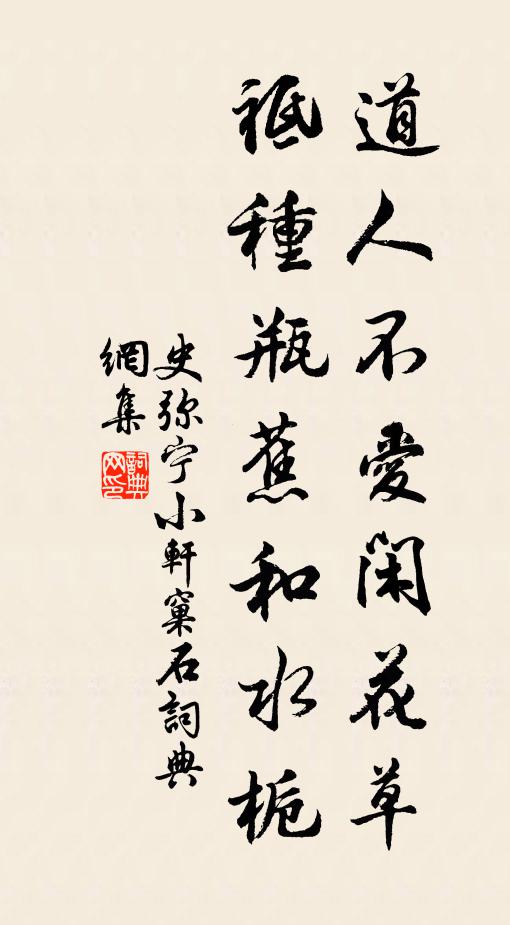 道人不愛閑花草
祇種瓶蕉和水梔
史弥宁小軒窠石詞典
網集
詞典
网印